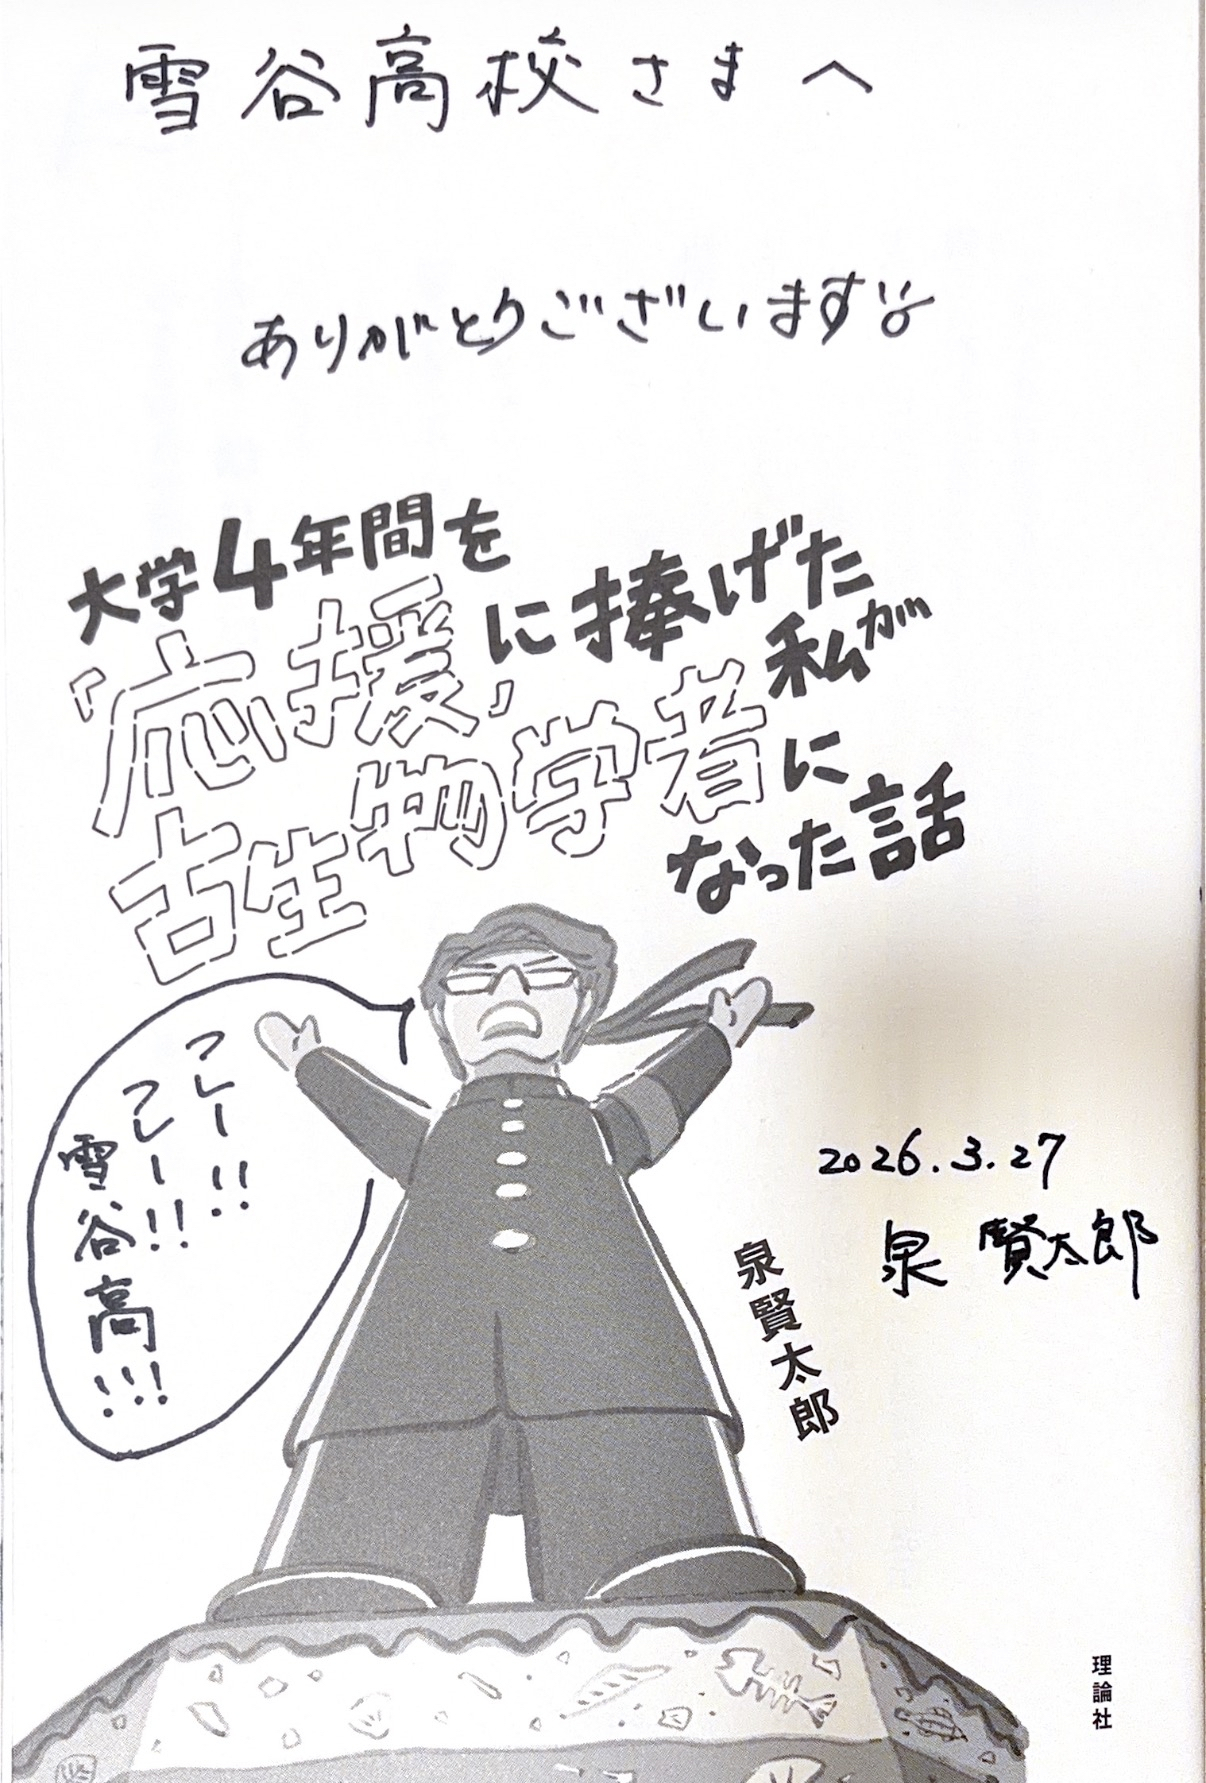 雪谷高校さまへ
ありがとうございます
大学4年間を
「応援」に捧げた
私が
古生物学者に
なった話
フレー!!
フレー!!
雪谷高!!!
2026.3.27
泉 賢太郎
泉賢太郎
理論社